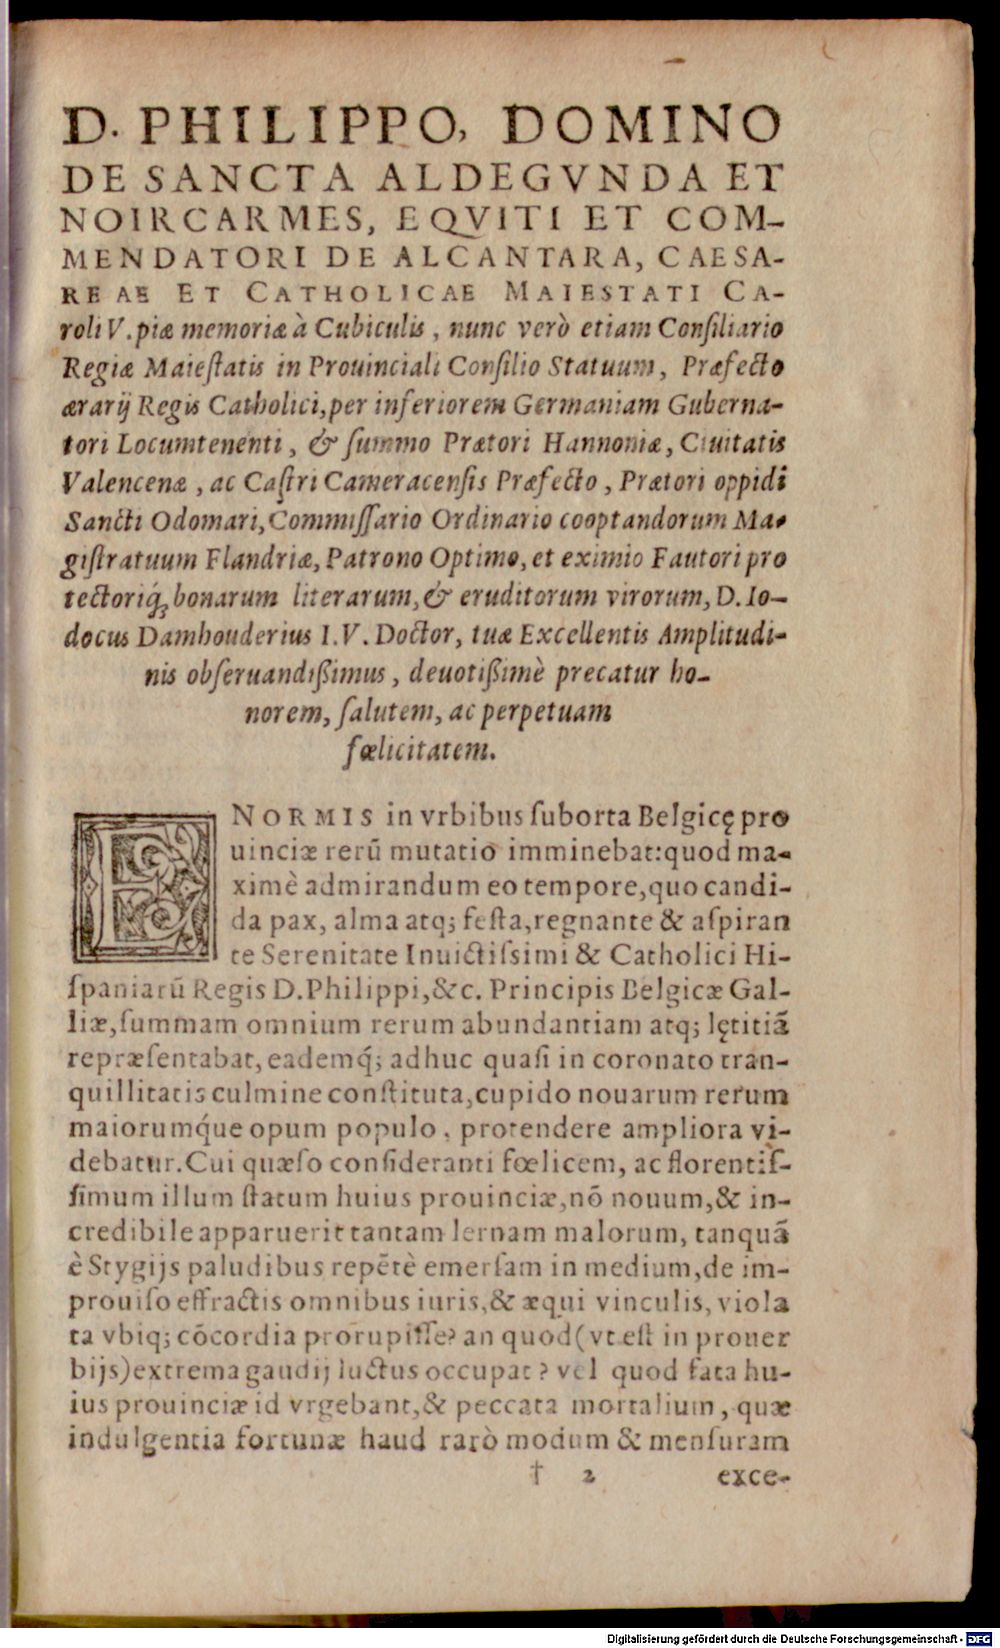 D. PHILIPPO, DOMINO
DE SANCTA ALDEGVNDA ET
NOIRCARMES, EQVITI ET COM-
MENDATORI DE ALCANTARA, CAESA-
REAE ET CATHOLICAE MAIESTATI CA-
roli V. piæ memoriæ à Cubiculis, nunc verò etiam Conſiliario
Regiæ Maieſtatis in Prouinciali Conſilio Statuum, Præfecto
ærarij Regis Catholici, per inferiorem Germaniam Guberna-
tori Locumtenenti, & ſummo Prætori Hannoniæ, Ciuitatis
Valencenæ, ac Caſtri Cameracenſis Præfecto, Prætori oppidi
Sancti Odomari, Commiſſario Ordinario cooptandorum Ma-
giſtratuum Flandriæ, Patrono Optimo, et eximio Fautori pro
tectoriq́ꝫ bonarum literarum, & eruditorum virorum, D. Io-
docus Damhouderius I. V. Doctor, tuæ Excellentis Amplitudi-
nis obſeruandiſſimus, deuotiſſimè precatur ho-
norem, ſalutem, ac perpetuam
fœlicitatem.
ENORMIS in vrbibus ſuborta Belgicę pro
uinciæ rerũ mutatio imminebat: quod ma-
ximè admirandum eo tempore, quo candi-
da pax, alma atq; feſta, regnante & aſpiran
te Serenitate Inuictiſsimi & Catholici Hi-
ſpaniarũ Regis D. Philippi, &c. Principis Belgicæ Gal-
liæ, ſummam omnium rerum abundantiam atq; lętitiã
repræſentabat, eademq́; adhuc quaſi in coronato tran-
quillitatis culmine conſtituta, cupido nouarum rerum
maiorumq́ue opum populo, protendere ampliora vi-
debatur. Cui quæſo conſideranti fœlicem, ac florentiſ-
ſimum illum ſtatum huius prouinciæ, nõ nouum, & in-
credibile apparuerit tantam lernam malorum, tanquã
è Stygijs paludibus repẽtè emerſam in medium, de im-
prouiſo effractis omnibus iuris, & æqui vinculis, viola
ta vbiq; cõcordia prorupiſſe? an quod (vt eſt in prouer
bijs) extrema gaudij luctus occupat? vel quod fata hu-
ius prouinciæ id vrgebant, & peccata mortalium, quæ
indulgentia fortunæ haud rarò modum & menſuram
† 2 exce-
Digitalisierung gefördert durch die Deutsche Forschungsgemeinschaft - DFG